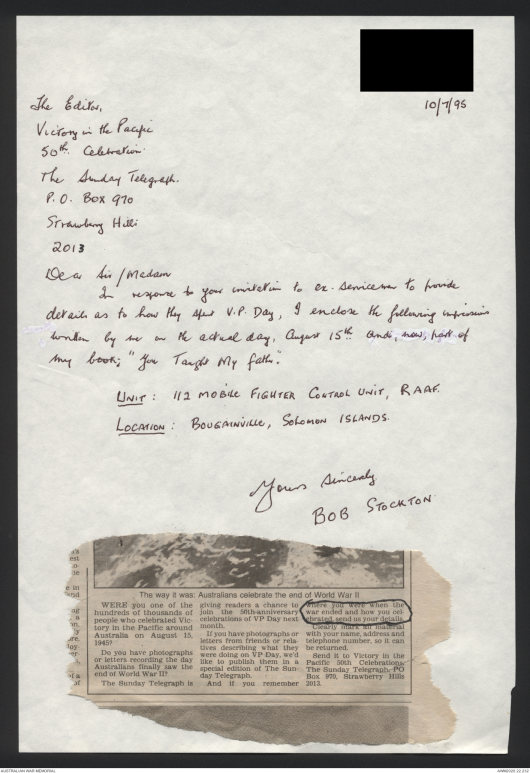 10/7/95
The Editor,
Victory in the Pacific
50th Celebration.
The Sunday Telegraph.
P.O. Box 970
Strawberry Hills
2013
Dear Sir/Madam
In response to your invitation to ex-servicemen to provide
details as to how they spent V.P. Day, I enclose the following impressions
written by me on the actual day, August 15th and, now, part of
my book; "You Taught My Father".
UNIT: 112 MOBILE FIGHTER CONTROL UNIT, RAAF.
LOCATION: BOUGAINVILLE, SOLOMON ISLANDS.
Yours Sincerely
BOB STOCKTON
The way it was: Australians celebrate the end of World War II
WERE you one of the
hundreds of thousands of
people who celebrated Vic-
tory in the Pacific around
Australia on August 15,
1945?
Do you have photographs
or letters recording the day
Australians finally saw the
end of World War II?
The Sunday Telegraph is
giving readers a chance to
join the 50th-anniversary
celebrations of VP Day next
month.
If you have photographs or
letters from friends or rela-
tives describing what they
were doing on VP Day, we'd
like to publish them in a
special edition of The Sun-
day Telegraph.
And if you remember
where you were when the
war ended and how you cel-
ebrated, send us your details.
Clearly mark all material
with your name, address and
telephone number, so it can
be returned.
Send it to Victory in the
Pacific 50th Celebrations,
The Sunday Telegraph, PO
Box 970, Strawberry Hills
2013.
AUSTRALIAN WAR MEMORIAL